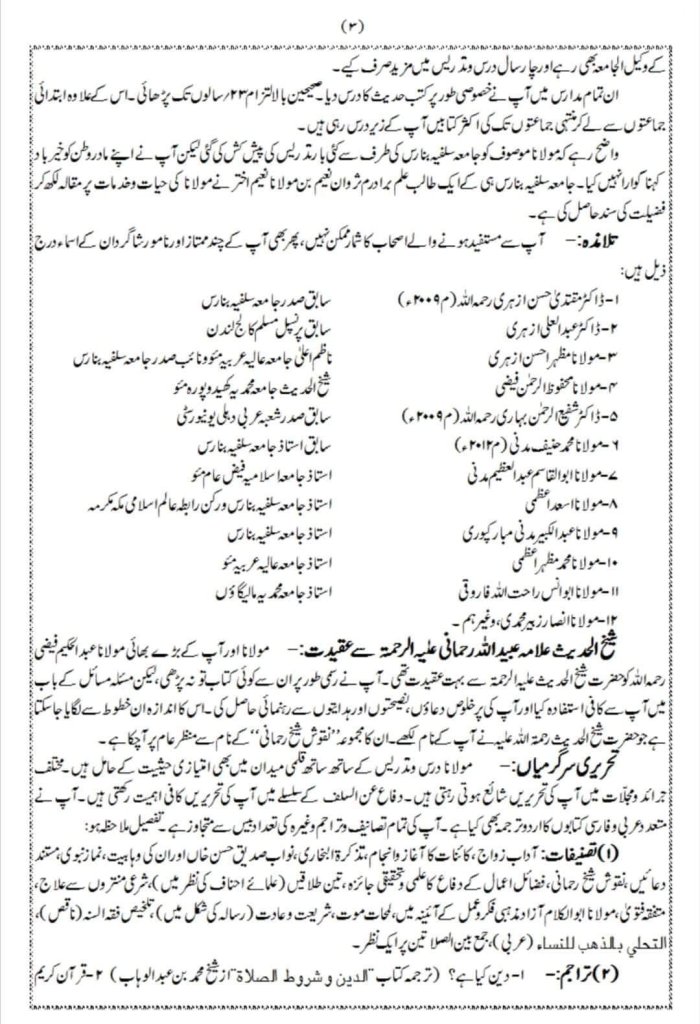 (۳)
کے وکیل الجامعہ بھی رہے اور چار سال درس وتدریس میں مزید صرف کیے۔
ان تمام مدارس میں آپ نے خصوصی طور پر کتب حدیث کا درس دیا۔ صحیحین بالالتزام ۲۳؍سالوں تک پڑھائی۔ اس کے علاوہ ابتدائی
جماعتوں سے لے کر منتہی جماعتوں تک کی اکثر کتابیں آپ کے زیر درس رہی ہیں۔
واضح رہے کہ مولانا موصوف کو جامعہ سلفیہ بنارس کی طرف سے کئی بار تدریس کی پیش کش کی گئی لیکن آپ نے اپنے مادر وطن کو خیر باد
کہنا گوارا نہیں کیا۔ جامعہ سلفیہ بنارس ہی کے ایک طالب علم برادرم ثروان نعیم بن مولانا نعیم اختر نے مولانا کی حیات وخدمات پر مقالہ لکھ کر
فضیلت کی سند حاصل کی ہے۔
تلامذہ:- آپ سے مستفید ہونے والے اصحاب کا شمار ممکن نہیں، پھر بھی آپ کے چند ممتاز اور نامور شاگردان کے اسماء درج
ذیل ہیں:
۱-ڈاکٹر مقتدیٰ حسن ازہری رحمہ اللہ (م۲۰۰۹ء) سابق صدر جامعہ سلفیہ بنارس
۲-ڈاکٹر عبدالعلی ازہری سابق پرنسپل مسلم کالج لندن
۳-مولانا مظہر احسن ازہری ناظم اعلیٰ جامعہ عالیہ عربیہ مئو ونائب صدر جامعہ سلفیہ بنارس
۴-مولانا محفوظ الرحمٰن فیضی شیخ الحدیث جامعہ محمدیہ کھیدوپورہ مئو
۵-ڈاکٹر شفیع الرحمٰن بہاری رحمہ اللہ (م۲۰۰۹ء) سابق صدر شعبہ عربی دہلی یونیورسٹی
۶-مولانا محمد حنیف مدنی (م۲۰۱۲ء) سابق استاذ جامعہ سلفیہ بنارس
۷-مولانا ابوالقاسم عبدالعظیم مدنی استاذ جامعہ اسلامیہ فیض عام مئو
۸-مولانا اسعد اعظمی استاذ جامعہ سلفیہ بنارس ورکن رابطہ عالم اسلامی مکہ مکرمہ
۹-مولانا عبدالکبیر مدنی مبارکپوری استاذ جامعہ سلفیہ بنارس
۱۰-مولانا محمد مظہر اعظمی استاذ جامعہ عالیہ عربیہ مئو
۱۱-مولانا ابوانس راحت اللہ فاروقی استاذ جامعہ محمدیہ مالیگاؤں
۱۲-مولانا انصار زبیر محمدی، وغیرہم۔
شیخ الحدیث علامہ عبیداللہ رحمانی علیہ الرحمۃ سے عقیدت:- مولانا اور آپ کے بڑے بھائی مولانا عبدالحکیم فیضی
رحمہ اللہ کو حضرت شیخ الحدیث علیہ الرحمۃ سے بہت عقیدت تھی۔ آپ نے رسمی طور پر ان سے کوئی کتاب تو نہ پڑھی، لیکن مسئلہ مسائل کے باب
میں آپ سے کافی استفادہ کیا اور آپ کی پرخلوص دعاؤں، نصیحتوں اور ہدایتوں سے رہنمائی حاصل کی۔ اس کا اندازہ ان خطوط سے لگایا جاسکتا
ہے جو حضرت شیخ الحدیث رحمۃ اللہ علیہ نے آپ کے نام لکھے۔ ان کا مجموعہ ’’نقوش شیخ رحمانی‘‘ کے نام سے منظر عام پر آچکا ہے۔
تحریری سرگرمیاں:- مولانا درس وتدریس کے ساتھ ساتھ قلمی میدان میں بھی امتیازی حیثیت کے حامل ہیں۔ مختلف
جرائد ومجلّات میں آپ کی تحریریں شائع ہوتی رہتی ہیں۔ دفاع عن السلف کے سلسلے میں آپ کی تحریریں کافی اہمیت رکھتی ہیں۔ آپ نے
متعدد عربی وفارسی کتابوں کا اردو ترجمہ بھی کیا ہے۔ آپ کی تمام تصانیف وتراجم وغیرہ کی تعداد بیس سے متجاوز ہے۔ تفصیل ملاحظہ ہو:
(۱) تصنیفات: آداب زواج، کائنات کا آغاز وانجام، تذکرۃ البخاری، نواب صدیق حسن خاں اور ان کی وہابیت، نماز نبوی، مستند
دعائیں، نقوش شیخ رحمانی، فضائل اعمال کے دفاع کا علمی وتحقیقی جائزہ، تین طلاقیں (علمائے احناف کی نظر میں)، شرعی منتروں سے علاج،
متفقہ فتویٰ، مولانا ابوالکلام آزاد مذہبی فکر وعمل کے آئینہ میں، لمحات موت، شریعت وعادت (رسالہ کی شکل میں)، تلخیص فقہ السنہ (ناقص)،
التحلي بالذهب للنساء (عربی)، جمع بین الصلاتین پر ایک نظر۔
(۲) تراجم:- ۱-دین کیا ہے؟ (ترجمہ کتاب "الدین و شروط الصلاة" از شیخ محمد بن عبدالوہاب) ۲-قرآن کریم